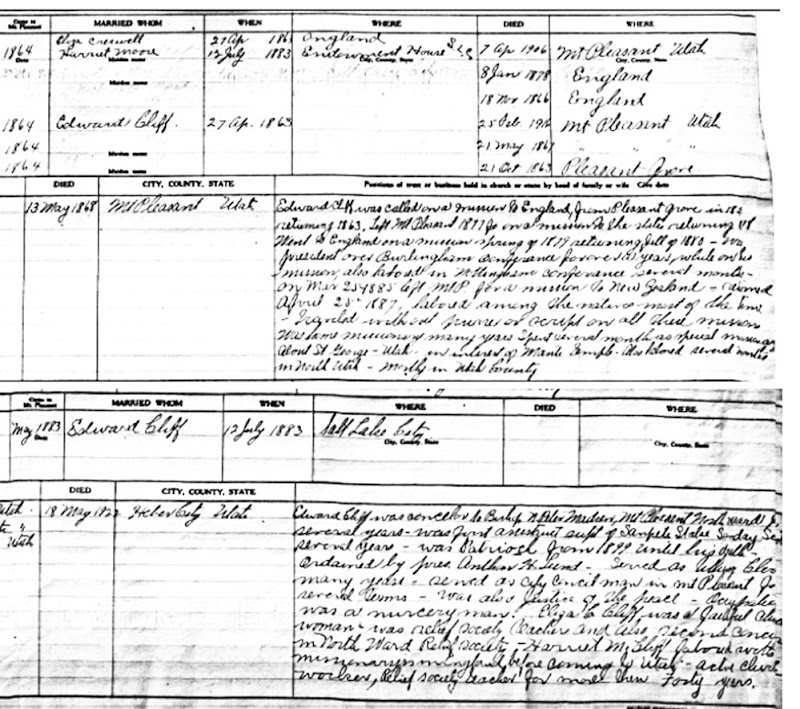 Came to Mt. Pleasant MARRIED WHOM WHEN WHERE DIED WHERE
Eliza Creswell 27 Ap 186 England
1864 Harriet Moore 12 July 1883 Endowment House S.L.C 7 Ap 1906 Mt Pleasant Utah
Date Maiden name City, County, State City, County, State
8 Jan 1878 England
Maiden name
18 Nov 1866 England
Maiden name
1864 Edward Cliff. 27 Ap. 1863 Mt Pleasant Utah
1864 21 May 1867 " "
Maiden name
1864 21 Oct 1863 Pleasant Grove
Maiden name
DIED CITY, COUNTY, STATE Positions of trust or business held in church or state by head of family or wife Give date
13 May 1868 Mt Pleasant Utah Edward Cliff was called on a mission to England, from Pleasant Grove in 186
returning 1863, Left Mt Pleasant 1877 for on a mission to the states returning 78
Went to England on a mission spring of 1879 returning fall of 1880 - Was
president over conferance for over year, while on his
mission, also labored in Nottingham conferance several months -
on Mar 25 1885 left Mt P. for a mission to New Zealand - returned
April 25 1887, labored among the natives most of the time
- Traveled without purse or script on all these missions
Was home missionary many years Spent several month as special missionary
about St George - Utah. in interest of Manti Temple. Also labored several months
in North Utah - Mostly in Utah County
Came to Mt. Pleasant MARRIED WHOM WHEN WHERE DIED WHERE
May 1883 Edward Cliff 12 July 1883 Salt Lake City
Date City, County, State City, County, State
DIED CITY, COUNTY, STATE
Utah. 18 May 192 Heber City Utah Edward Cliff was concelor to Bishop Peter Madsen, Mt Pleasant North ward for
several years - was first assistant supt of Sanpete Stake Sunday
Utah several years - was Patriarch from 1899 until his death -
ordained by pres. Anthon H. Lund - Served as
many years - served as city Concil man in mt Pleasant for
several terms - was also Justice of the peace - Ocupation
was a nurcery man. - Eliza C. Cliff, was a faithful
woman - was relief society teacher and also second
in North Ward Relief society - Harriet M. Cliff labored with
missionarys in england before coming to Utah -
worker, Relief society teacher for more then Forty years.